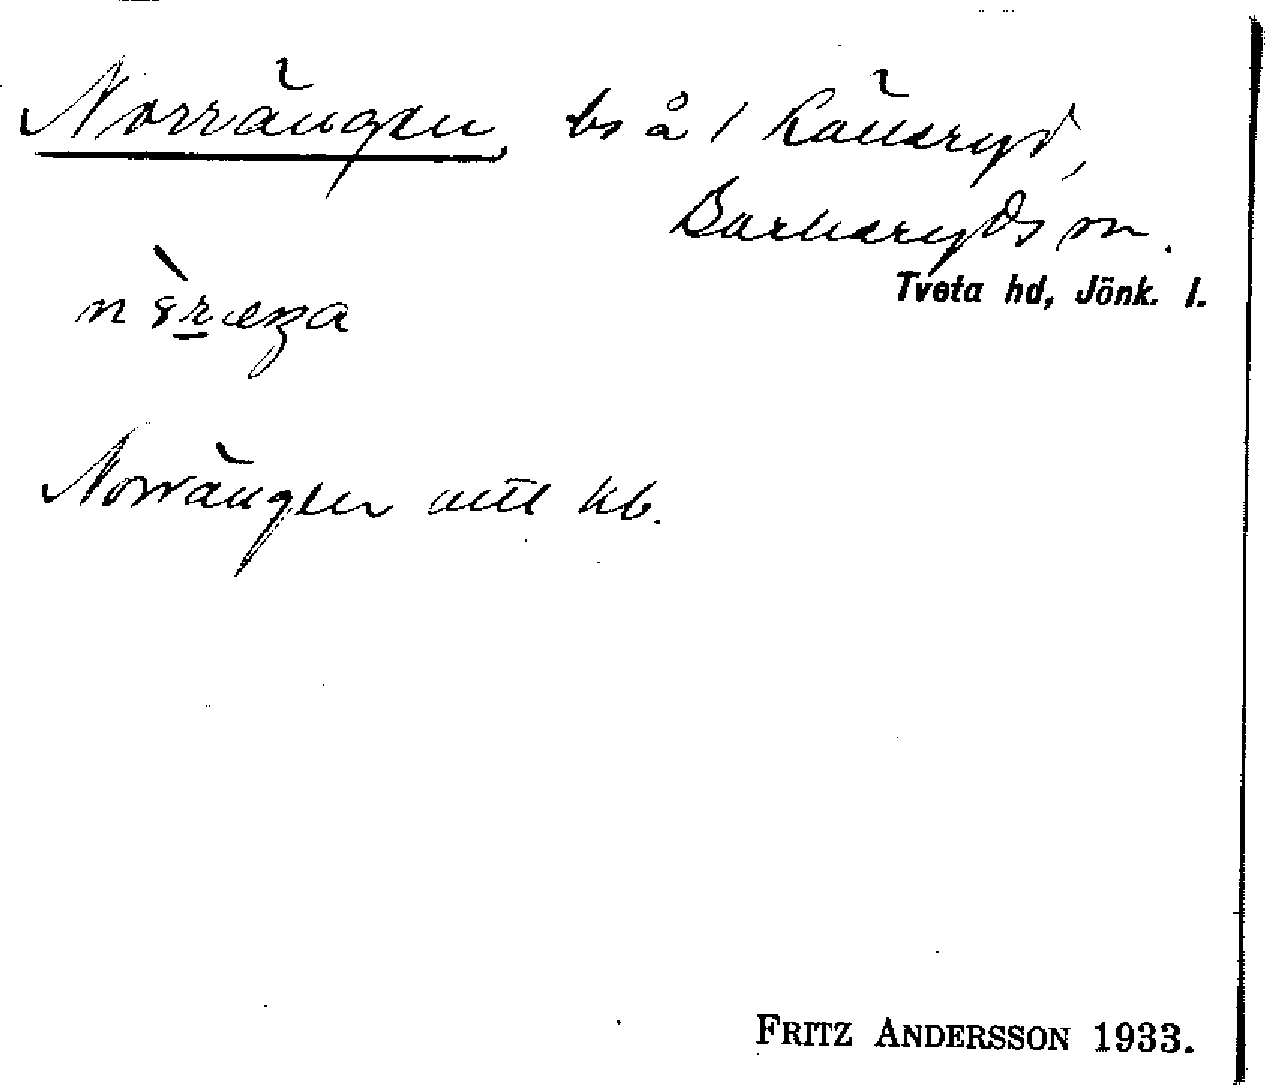 Norrängen bs å 1 Källeryd,
Barkeryds sn.
Tveta hd, Jönk. l.
Norrängen utt kb.
FRITZ ANDERSSON 1933.